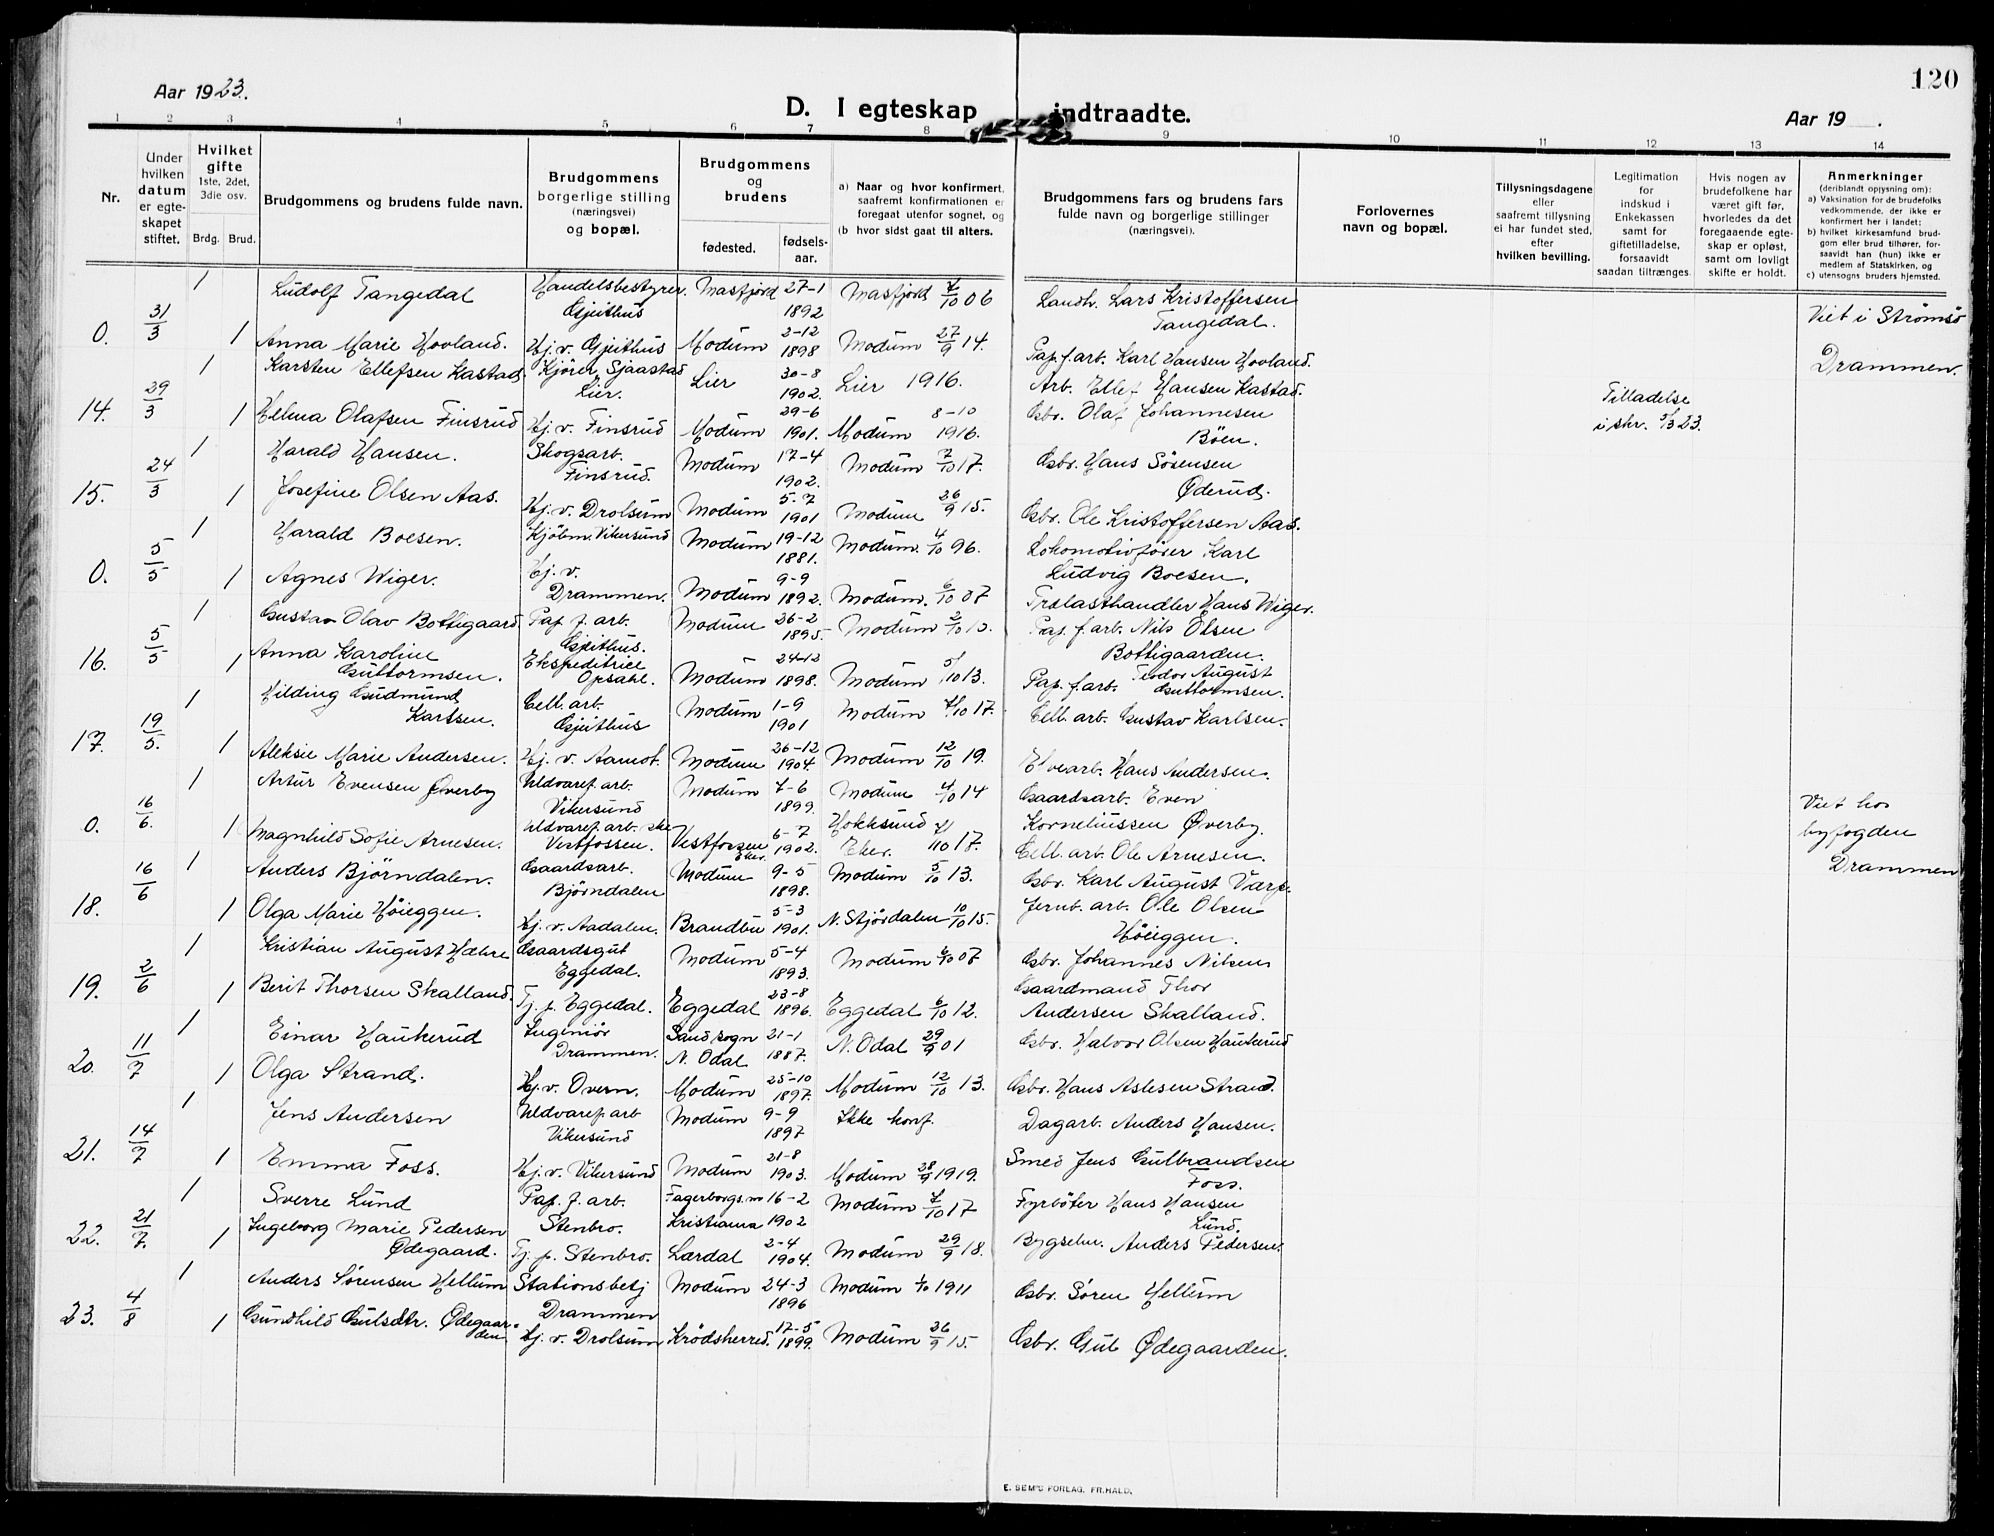 120
Aar 1923.
D. I egteskap indtraadte.
Aar 19 .
1 2 3 4 5 6 7 8 9 10 11 12 13 14
Nr.
Under hvilken datum er egteskapet stiftet.
Hvilket gifte 1ste, 2det, 3die osv.
Brdg. Brud.
Brudgommens og brudens fulde navn.
Brudgommens borgerlige stilling (næringsvei) og bopæl.
Brudgommens og brudens
fødested. fødselsaar.
a) Naar og hvor konfirmert, saafremt konfirmationen er foregaat utenfor sognet, og
(b hvor sidst gaat til alters.
Brudgommens fars og brudens fars fulde navn og borgerlige stillinger (næringsvei).
Forlovernes navn og bopæl.
Tillysningsdagene eller saafremt tillysning ei har fundet sted, efter hvilken bevilling.
Legitimation for indskud i Enkekassen samt for giftetilladelse, forsaavidt saadan tiltrænges.
Hvis nogen av brudefolkene har været gift før, hvorledes da det foregaaende egteskap er opløst, samt om lovligt skifte er holdt.
Anmerkninger (deriblandt opysning om):
a) Vaksination for de brudefolks vedkommende, der ikke er konfirmert her i landet;
b) hvilket kirkesamfund brudgom eller brud tilhører, forsaavidt han (hun) ikke er medlem af Statskirken, og
c) utensogns bruders hjemsted.
0. 31/3 1 Ludolf Tangedal Handelsbestyrer Gjeithus Masfjord 27-1 1892 Masfjord 06 Landh. Lars Kristoffersen Tangedal. Viet i Strømsø Drammen.
1 Anna Marie Hovland. Hj. v. Gjeithus Modum 2-12 1898 Modum 27/9 14. Pap. f. arb. Karl Hansen Hovland.
14. 29/3 1 Karsten Ellefsen Kastad. Kjører Sjaastad Lier. Lier 30-8 1902. Lier 1916. Arb. Ellef Hansen Kastad. Tilladelse
1 Helma Olafsen Finsrud Hj. v. Finsrud Modum 29-6 1901. Modum 8-10 1916. Gbr. Olaf Johannesen Bøen.
15. 24/3 1 Harald Hansen. Skogsarb. Finsrud. Modum 17-4 1902. Modum 7/10 17. Gbr. Hans Sørensen Øderud.
1 Josefine Olsen Aas. Hj. v. Drolsum Modum 5-7 1901 Modum 26/9 15. Gbr. Ole Kristoffersen Aas.
0. 5/5 1 Harald Boesen. Kjøbm. Vikersund Modum 19-12 1881. Modum. 4/10 96. Lokomotivfører Karl Ludvig Boesen.
1 Agnes Wiger. Hj. v. Drammen. Modum 9-9 1892. Modum. 6/10 07 Trælasthandler Hans Wiger.
16. 5/5 1 Gustav Olav Bottigaard. Pap. f. arb. Gjeithus. Modum 26-2 1895. Modum Pap. f. arb. Nils Olsen Bottigaarden.
1 Anna Karoline Guttormsen. Ekspeditrice Opsahl. Modum 24-12 1898. Modum 5/10 13. Pap. f. arb. Teodor August Guttormsen.
17. 19/5. 1 Hilding Gudmund Karlsen. Cell. arb. Gjeithus Modum 1-9 1901 Modum 17. Cell. arb. Gustav Karlsen.
1 Aleksie Marie Andersen. Hj. v. Aamot. Modum 26-12 1904. Modum 12/10 19. Elvearb. Hans Andersen.
0. 16/6. 1 Artur Evensen Øverby Uldvaref. arb. Vikersund Modum 7-6 1899. Modum 4/10 14 Gaardsarb. Even Korneliussen Øverby. Viet hos byfogden Drammen
1 Magnhild Sofie Arnesen. Uldvaref. arb. ske Vestfossen. Vestfossen Eker. 6-7 1902. Hokksund Eker. 17. Cell. arb. Ole Arnesen.
18. 16/6 1 Anders Bjørndalen. Gaardsarb. Bjørndalen Modum 9-5 1898. Modum 5/10 13. Gbr. Karl August Varp.
1 Olga Marie Høieggen. Hj. v. Aadalen. Brandbu 5-3 1901. N. Stjørdalen 10/10 15. Jernb. arb. Ole Olsen Høieggen.
19. 2/6 1 Kristian August Hæhre Gaardsgut Eggedal. Modum 5-4 1893. Modum 6/10 07 Gbr. Johannes Nilsen
1 Berit Thorsen Skalland. Tj. p. Eggedal. Eggedal 23-8 1896. Eggedal 6/10 12. Gaardmand Thor Andersen Skalland.
20. 11/7 1 Einar Haukerud Ingeniør Drammen. Sand sogn N. Odal 21-1 1887. N. Odal 29/9 01 Gbr. Halvor Olsen Haukerud
1 Olga Strand. Hj. v. Overn. Modum 25-10 1897. Modum 12/10 13. Gbr. Hans Aslesen Strand.
21. 14/7 1 Jens Andersen Uldvaref. arb Vikersund Modum 9-9 1897 Ikke konf. Dagarb. Anders Hansen.
1 Emma Foss. Hj. v. Vikersund Modum 21-8 1903. Modum 28/9 1919. Smed Jens Gulbrandsen Foss.
22. 21/7. 1 Sverre Lund Pap. f. arb. Stenbro. Fagerborgs m Kristiania 16-2 1902 Modum 7/10 17 Fyrbøter Hans Hansen Lund.
1 Ingeborg Marie Pedersen Ødegaard. Tj. p. Stenbro. Lærdal 2-4 1904. Modum 29/9 18. Bygselm. Anders Pedersen.
23. 4/8 1 Anders Sørensen Hellum Stationsbetj Drammen Modum 24-3 1896 Modum 1/10 1911 Gbr. Søren Hellum
1 Gundhild Gulsdtr. Ødegaarden Hj. v. Drolsum Krødsherred. 17-5 1899. Modum 26/9 15. Gbr. Gul Ødegaarden.
E. SEM'S FORLAG. FR.HALD.